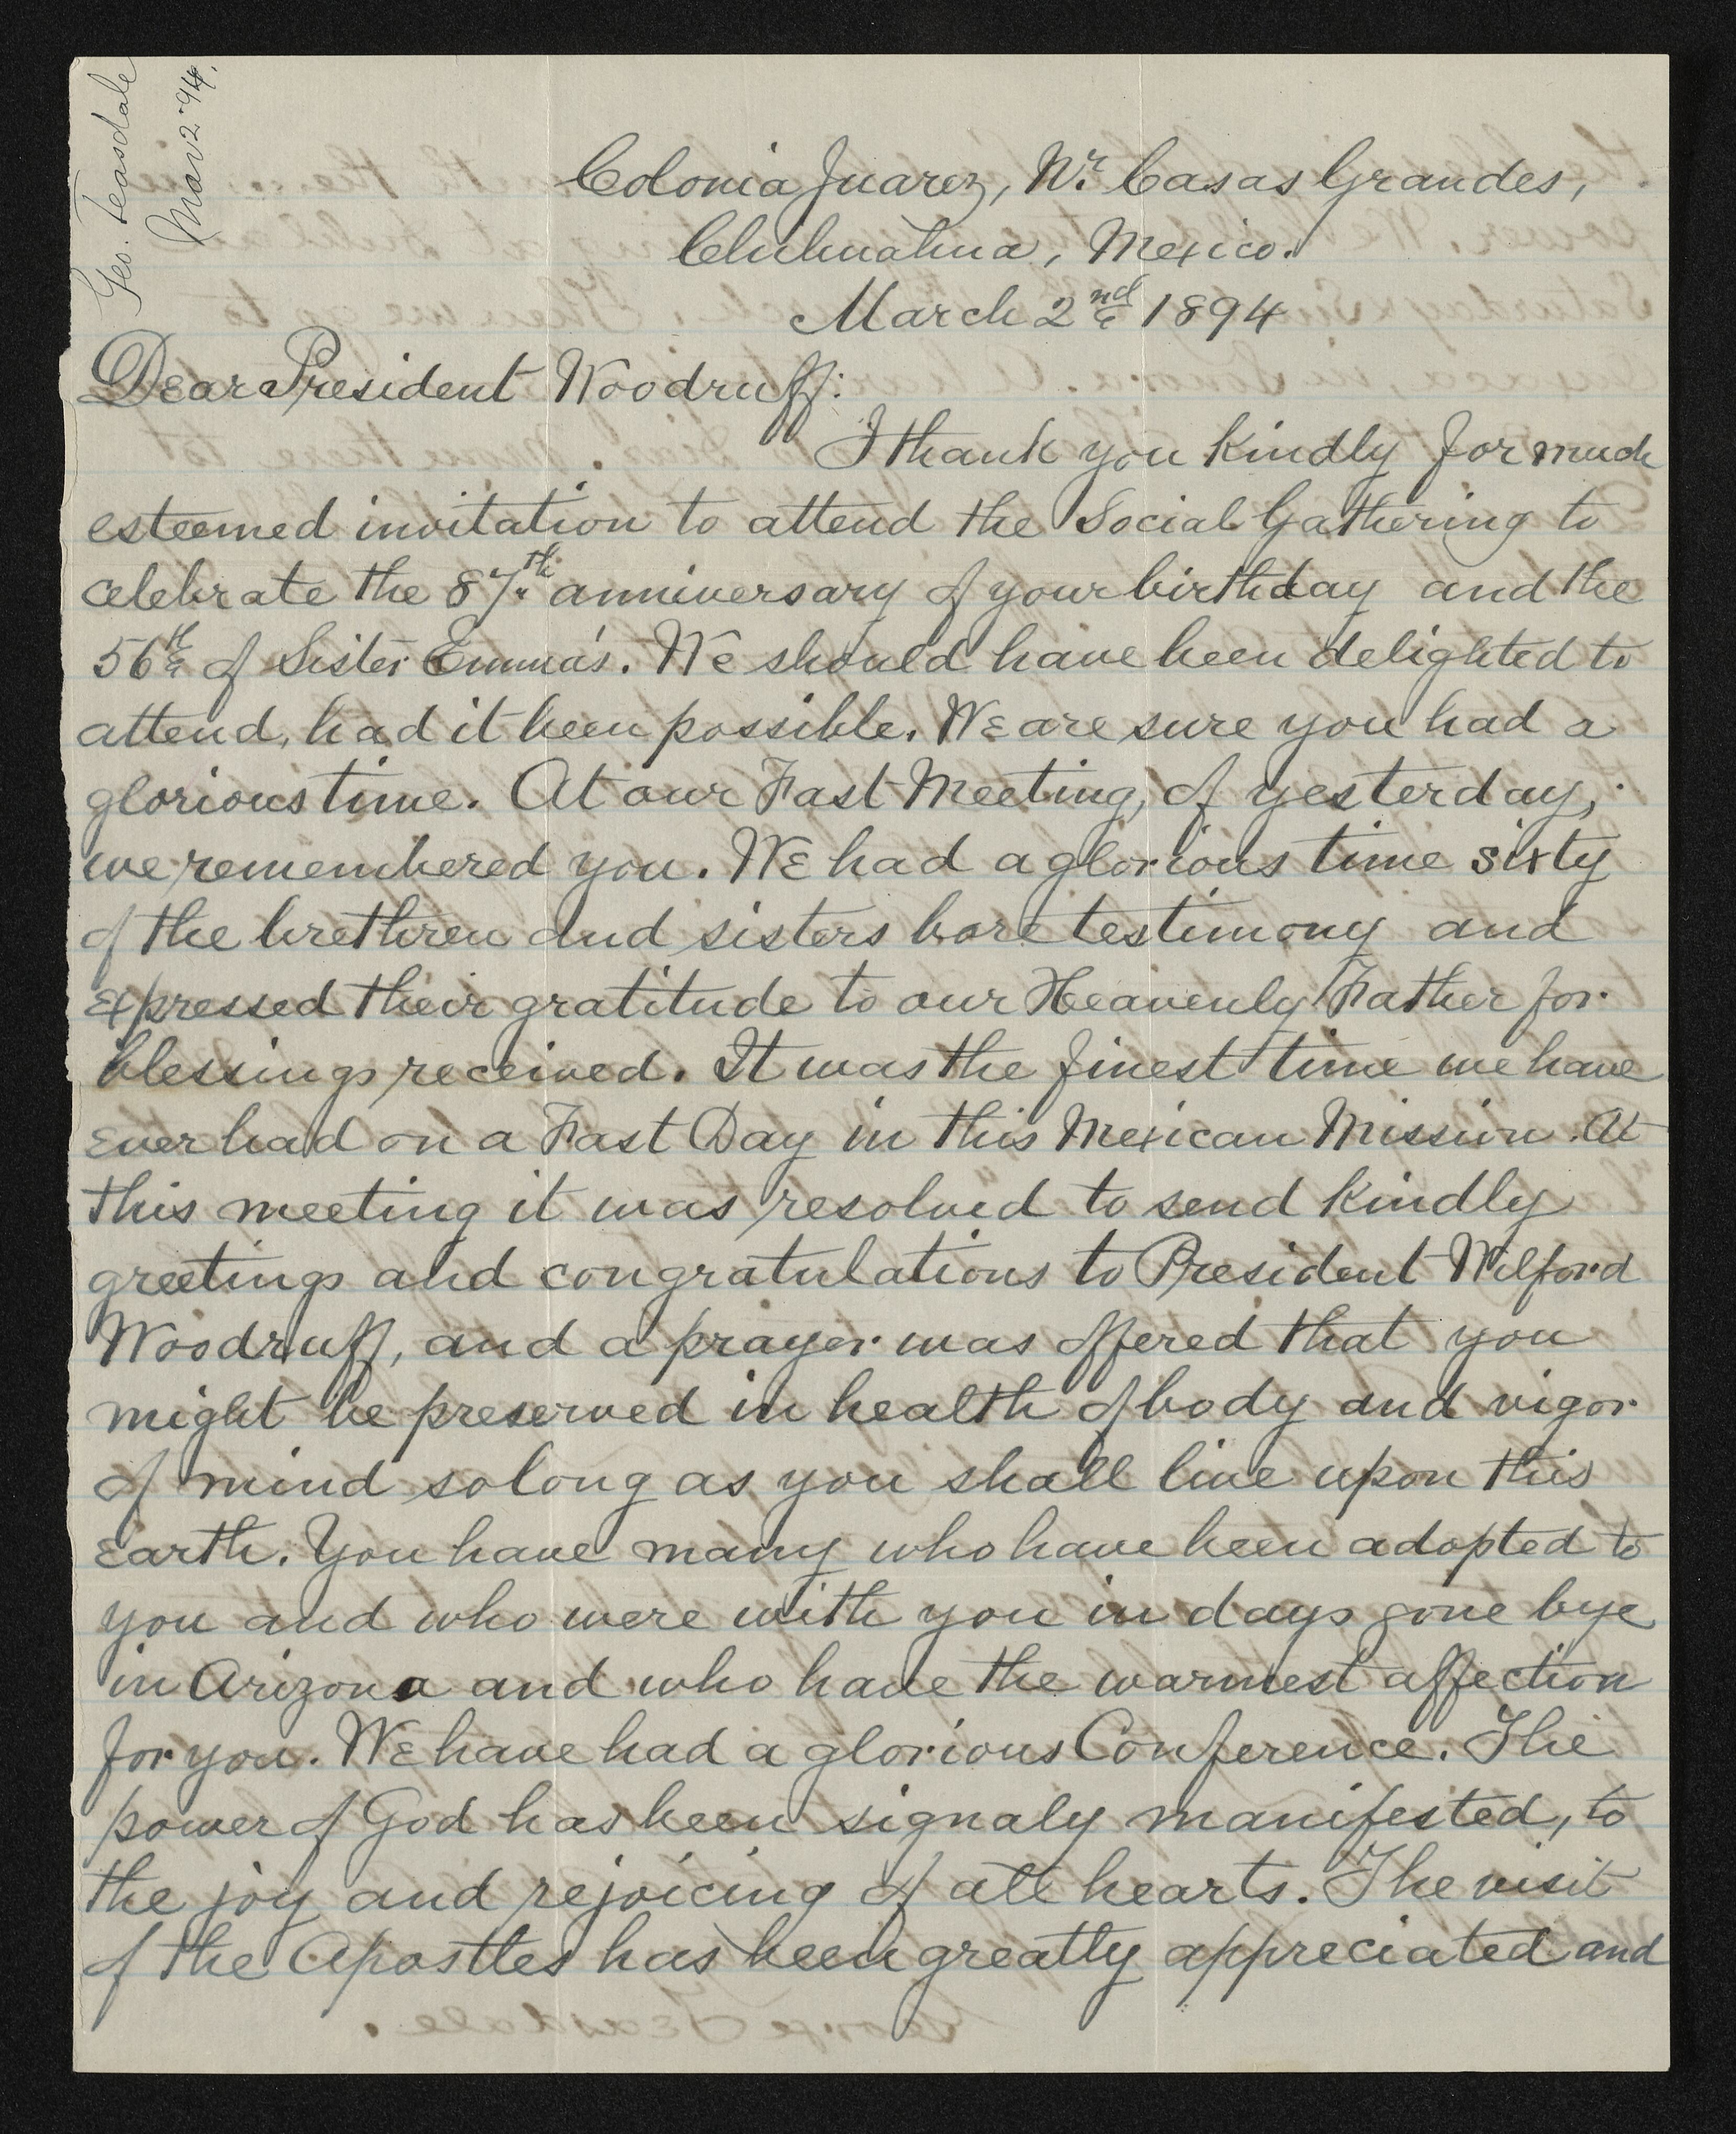 Geo. Teasdale
Mar 2 '94.
Colonia Juarez, Nr. Casas Grandes,
Chihuahua, Mexico.
March 2nd 1894
Dear President Woodruff:
I thank you kindly for much
esteemed invitation to attend the Social Gathering to
celebrate the 87th anniversary of your birthday and the
56th of Sister Emma's. We should have been delighted to
attend, had it been possible. We are sure you had a
glorious time. At our Fast Meeting, of yesterday,
we remembered you. We had a glorious time sixty
of the brethren and sisters bore testimony and
expressed their gratitude to our Heavenly Father for
blessings received. It was the finest time we have
ever had on a Fast Day in this Mexican Mission. At
this meeting it was resolved to send kindly
greetings and congratulations to President Wilford
Woodruff, and a prayer was offered that you
might be preserved in health of body and vigor
of mind so long as you shall live upon this
earth. You have many who have been adopted to
you and who were with you in days gone bye
in Arizona and who have the warmest affection
for you. We have had a glorious Conference. The
power of God has been signaly manifested, to
the joy and rejoicing of all hearts. The visit
of the Apostles has been greatly appreciated and